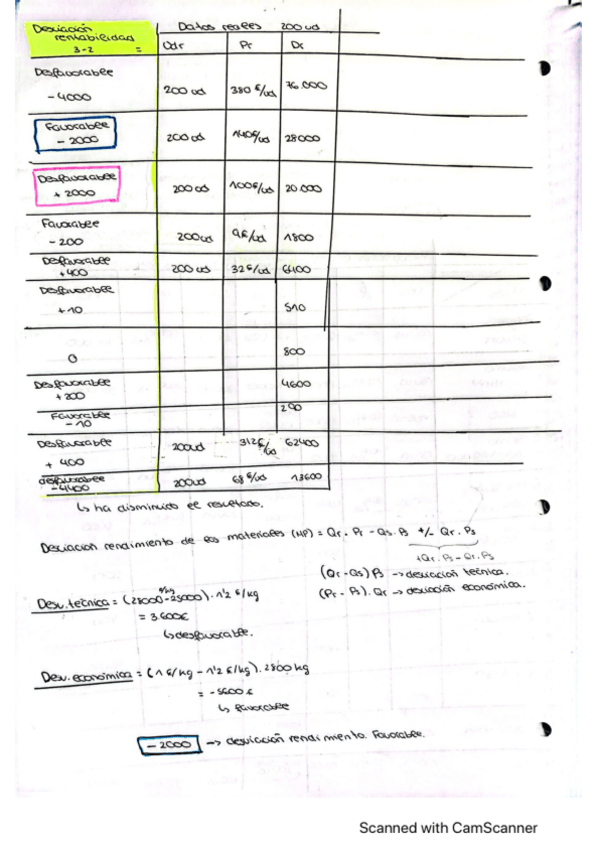 Desviación rentabilidad 3-2 = | Datos reales 200 ud
Qdr | Pr | Dr
Desfavorable -4000 | 200 ud | 380 €/ud | 76.000
Favorable -2000 | 200 ud | 140€/ud | 28000
Desfavorable +2000 | 200 ud | 100€/ud | 20.000
Favorable -200 | 200ud | 9€/ud | 1800
Desfavorable +400 | 200 ud | 32€/ud | 6400
Desfavorable +10 | 510
0 | 800
Desfavorable +200 | 4600
Favorable -10 | 290
Desfavorable +400 | 200ud | 312€/ud | 62400
desfavorable -4400 | 200ud | 68 €/ud | 13600
↳ ha disminuido el resultado.
Desviación rendimiento de los materiales (MP) = Qr . Pr - Qs . Ps +/- Qr . Ps
+Qr . Ps - Qr . Ps
(Qr - Qs) Ps → desviación técnica.
(Pr - Ps) . Qr → desviación económica.
Desv. técnica = (28000 - 25000) . 1'2 €/kg
= 3600€
↳ desfavorable.
Desv. económica = (1 €/kg - 1'2 €/kg) . 2800 kg
= -5600 €
↳ favorable
-2000 → desviación rendimiento. Favorable.
Scanned with CamScanner